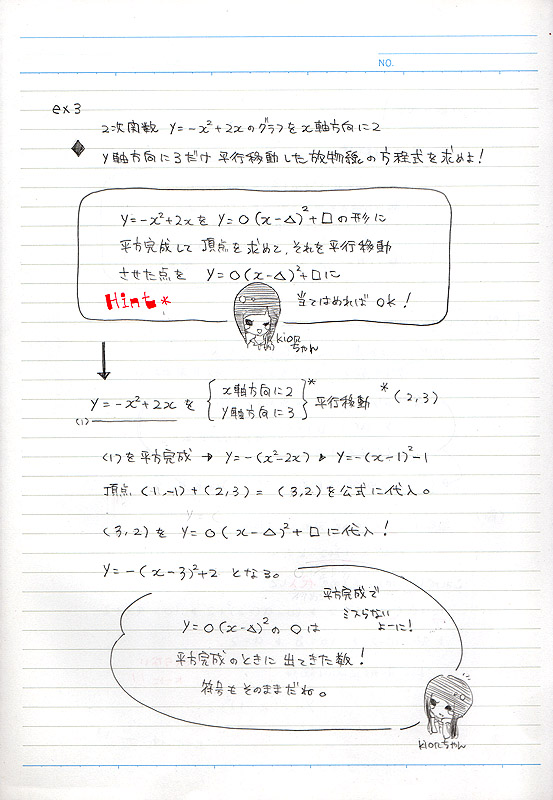 NO.
ex3
2次関数 y=-x²+2xのグラフをx軸方向に2
y軸方向に3だけ平行移動した放物線の方程式を求めよ!
y=-x²+2xを y=○(x-△)²+□の形に
平方完成して頂点を求めて、それを平行移動
させた点を y=○(x-△)²+□に
Hint*
当てはめれば ok!
kionちゃん
y=-x²+2x を { x軸方向に2 y軸方向に3 }* 平行移動 *(2,3)
(1)
(1)を平方完成 → y=-(x²-2x) ▶ y=-(x-1)²-1
頂点 (1,-1)+(2,3)=(3,2)を公式に代入。
(3,2)を y=○(x-△)²+□に代入!
y=-(x-3)²+2 となる。
平方完成で
ミスらない
よーに!
y=○(x-△)²の ○は
平方完成のときに出てきた数!
符号もそのままだね。
kionちゃん